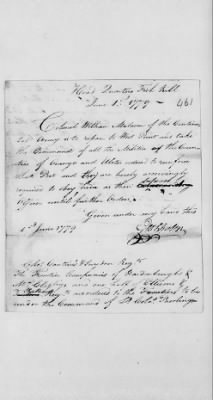 Head Quarters Fish Kill
June 1st 1779
461
Colonel William Malcom of the Continen
tal Army is to repair to West Point and take
the Command of all the Militia of the Coun
ties of Orange and Ulster ordered to reinforce
that Post and they are hereby accordingly
required to obey him as their
Officer until further Orders.
Given under my hand this
1st June 1779
Colo Cantines & Snyders Regts
The Frontier Companies of Hardenberghs &
and one half of
Regts as ordered to the Frontiers to be
under the Command of Lt Colo